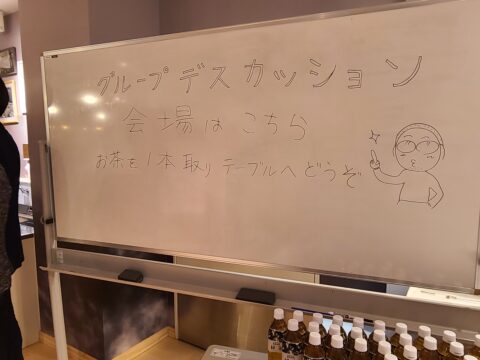 グループデスカッション
会場はこちら
お茶を1本取りテーブルへどうぞ